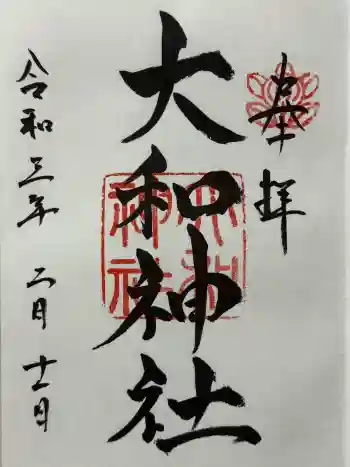 奉拝
大和神社
令和三年 二月 十一日
大和
神社